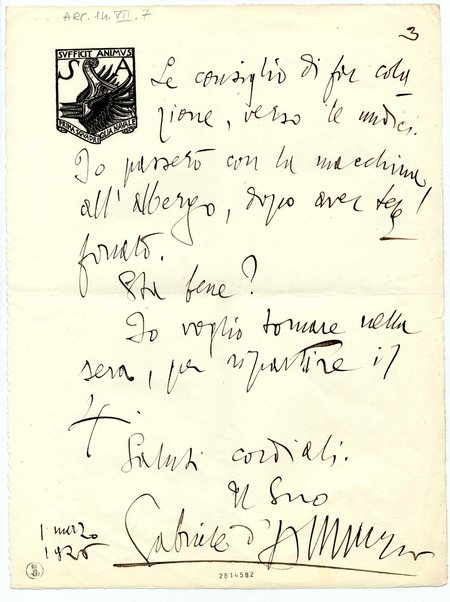 ARC. 14. VII. 7
3
SVFFICIT ANIMVS
S A
PRIMA SQVADRIGLIA NAVALE
Le consiglio di far cola
zione, verso le undici.
Io passerò con la macchina
all'albergo, dopo aver tele
fonato.
Sta bene?
Io voglio tornare nella
sera, per ripartire il
4.
Saluti cordiali.
Il Suo
Gabriele d'Annunzio
1 marzo
1926
2814582